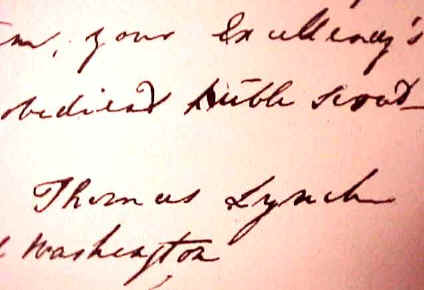 am, your Excellency's
obedient Huble servt
Thomas Lynch
l Washington